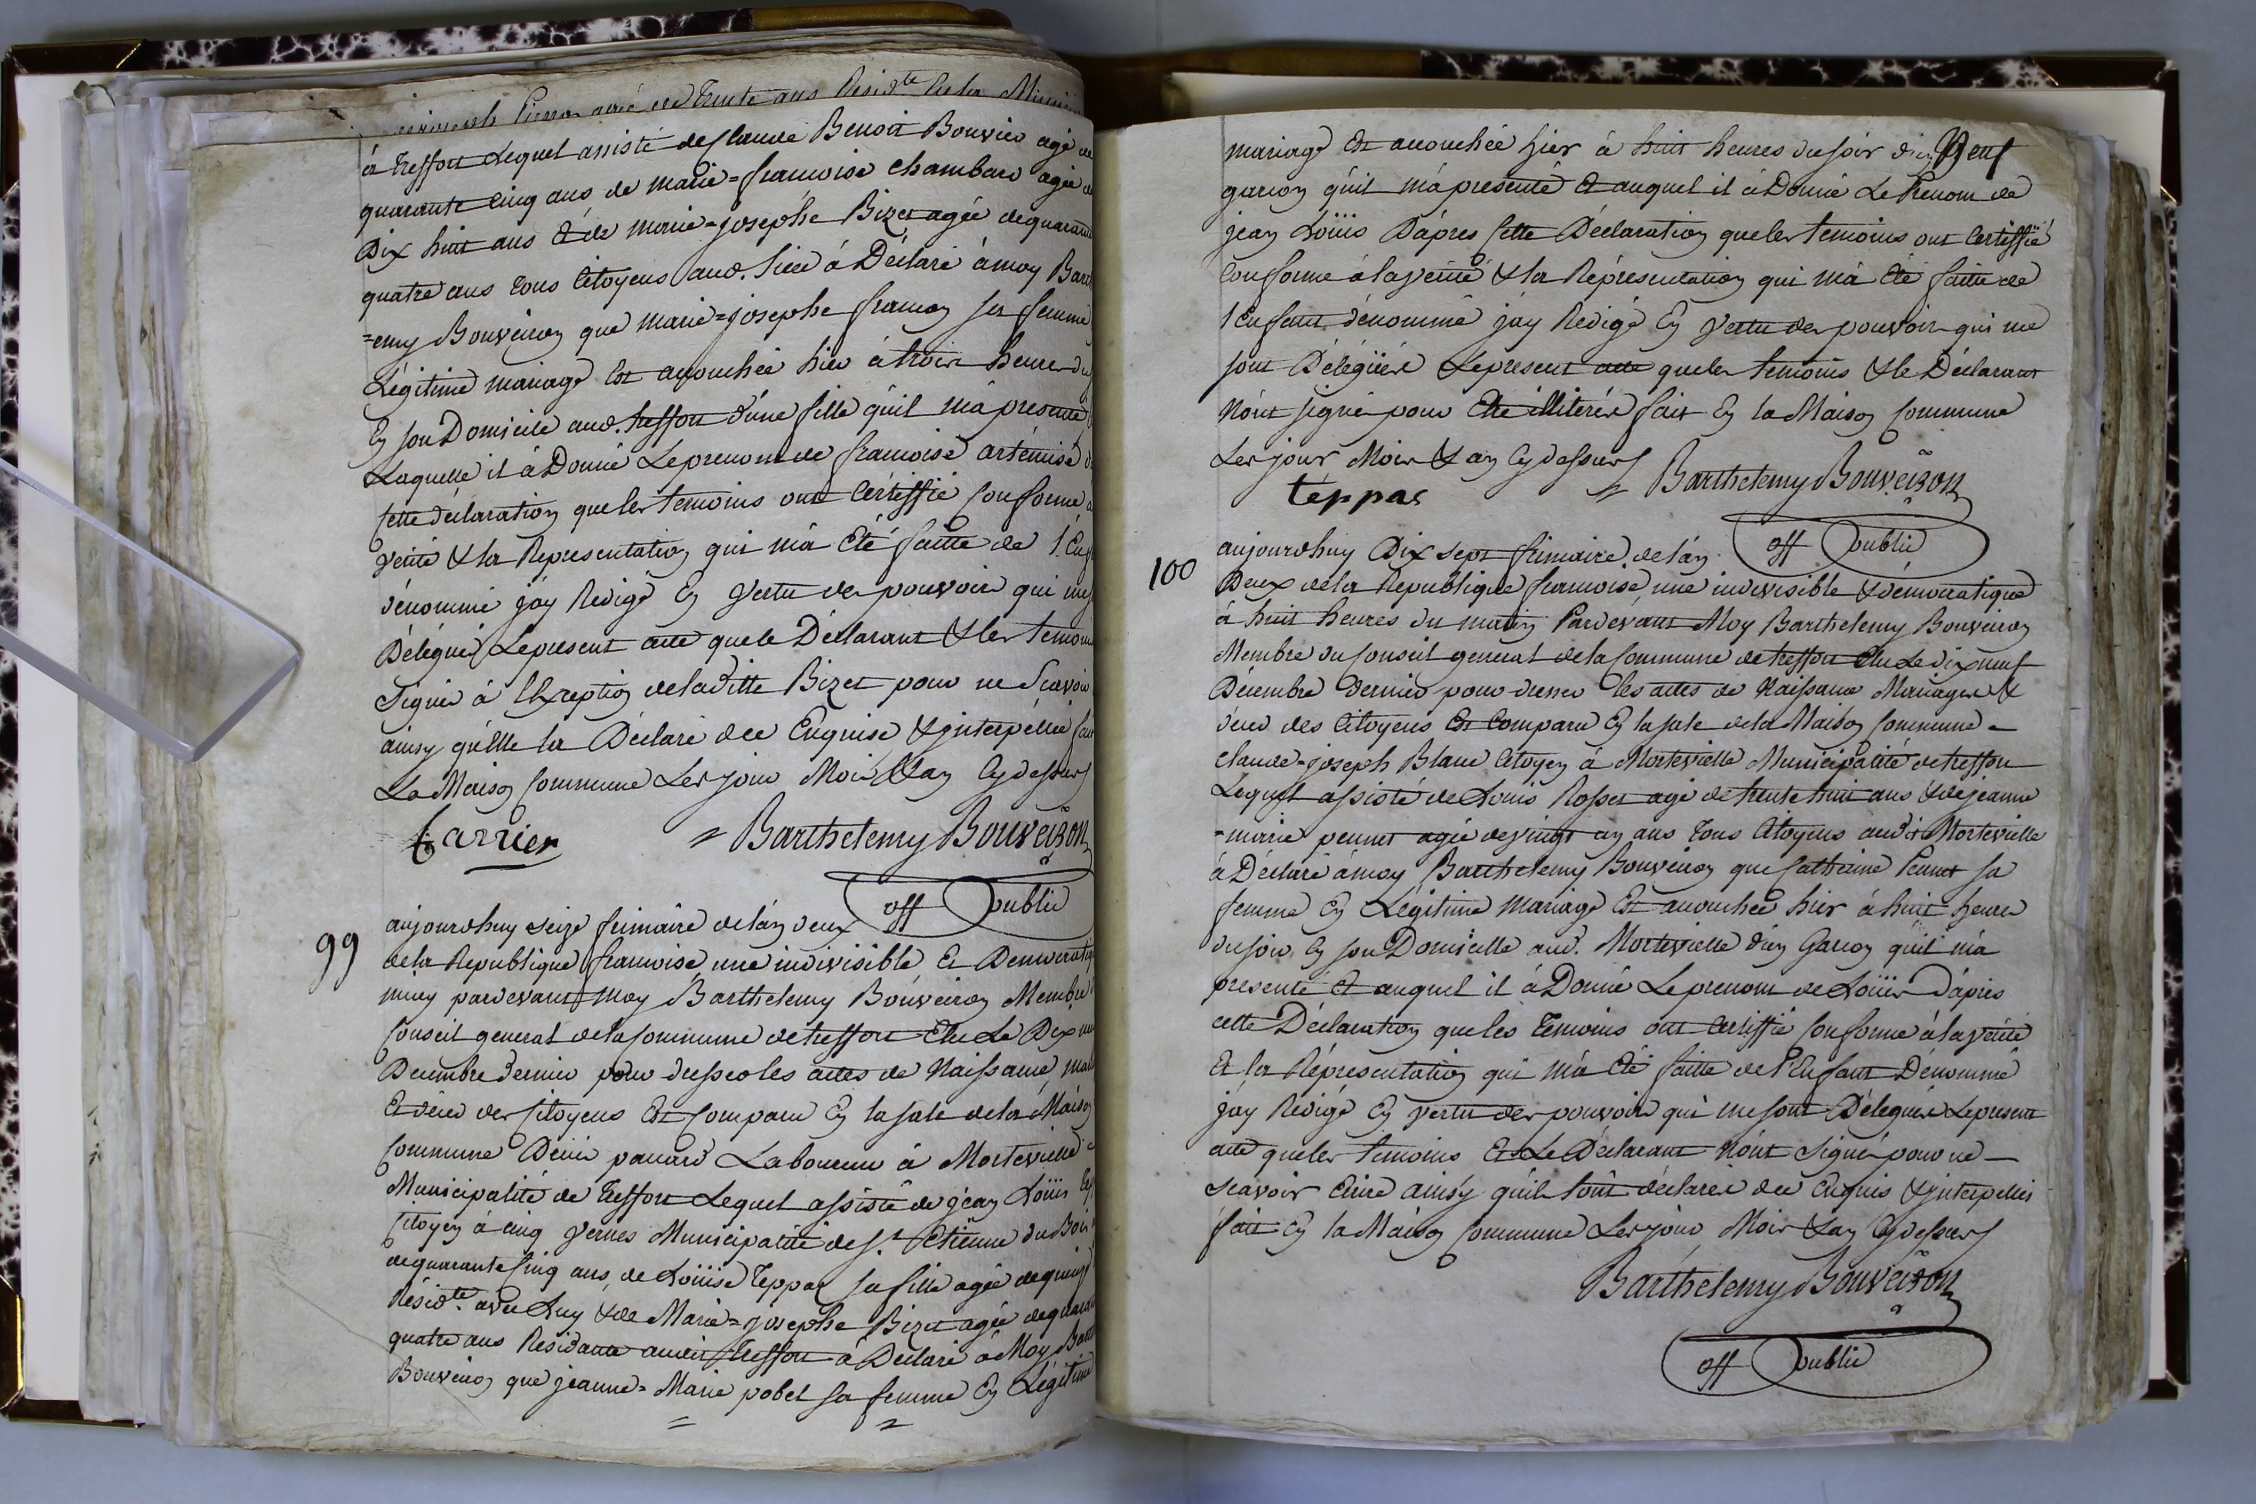 agé de trente ans Resid.te
à treffort Lequel assisté de Claude Benoit Bouvier agé de
quarante cinq ans, de marie=francoise chambard agée de
Dix huit ans & de marie=josephe Bizet agée de quarante
quatre ans tous Citoyens aud. lieu à Déclaré à moy Barth
=emy Bouveiron que marie=josephe francon sa femme
Légitime mariage Est accouchée hier à trois heures du
En son Domicile aud. treffort d'une fille qu'il m'à presenté
Laquelle il à Donné Le prenom de francoise artémise
cette déclaration que les temoins ont Certiffié Conforme à
verité & la Representation qui m'à Eté faitte de l'Enf
dénommé j'ay Redigé En vertu des pouvoirs qui me
Délégués Le present acte que le Déclarant & les temoins
Signés à l'Exception de laditte Bizet pour ne Scavoir
ainsy qu'Elle la Déclaré de ce Enquise & jnterpellée fait
La Maison Commune Les jour Mois & an Cy dessus
Carrier = Barthelemy Bouveiron
off public
99
aujourdhuy seize frimaire de l'an deux
de la Republique francoise une indivisible Et Democratique
par devant moy Barthelemy Bouveiron Membre
Conseil general de la Commune de treffort Elu Le Dix neuf
Decembre dernier pour dresser les actes de Naissance
Et déces des Citoyens Est Comparu En la sale de la Maison
Commune Denis panard Laboureur à Mortevielle
Municipalité de treffort Lequel assisté de jean Loüis
Citoyen à cinq vernes Municipalité de S.t Etienne du Bois
de quarante Cinq ans, de Loüise Teppas sa fille agée de quinze
Résid.te avec Luy & de Marie=josephe Bizet agée de quarante
quatre ans Residante audit treffort à Déclaré à Moy Barth
Bouveiron que jeanne=Marie pobel sa femme En Légitime
mariage Est accouchée hier à huit heures du soir d'un
garcon qu'il m'à presenté & auquel il à Donné Le Prenom de
jean Loüis D'àpres Cette Déclaration que les temoins ont Certiffié
Conforme à la verité & la Réprésentation qui m'à Eté faitte de
l'Enfant dénommé j'ay Redigé En vertu des pouvoirs qui me
sont Délégüés Le present acte que les temoins & le Déclarant
n'ont signé pour Etre illitérés fait En la Maison Commune
Les jour Mois & an Cy dessus
téppas = Barthelemy Bouveiron
off public
100
aujourdhuy Dix sept frimaire de l'an
Deux de la Republique francoise une indivisible & démocratique
à huit heures du matin Pardevant Moy Barthelemy Bouveiron
Membre du Conseil general de la Commune de treffort Elu Le dix neuf
Décembre Dernier pour dresser les actes de Naissance Mariages &
déces des Citoyens Est Comparu En la sale de la Maison Commune
Claude=joseph Blanc Citoyen à Mortevielle Municipalité de treffort
Lequel assisté de Louis Rosset agé de trente huit ans & de jeanne
=marie pennet agée de vingt un ans tous Citoyens audit Mortevielle
à Déclaré à moy Barthelemy Bouveiron que Catherine Pennet sa
femme En Légitime Mariage Est accouchée hier à huit heures
du soir En son Domicille aud. Mortevielle d'un Garcon qu'il m'a
presenté & auquel il à Donné Le prenom de Loüis D'àpres
cette Déclaration que les temoins ont Certiffié Conforme à la verité
Et la Réprésentation qui m'à Eté faitte de l'Enfant Dénommé
j'ay Rédigé En vertu des pouvoirs qui me sont Délegués Le present
acte que les temoins Et Le Déclarant n'ont Signé pour ne
scavoir Ecrire ainsy qu'ils l'ont déclaré de ce Enquis & jnterpellés
fait En la Maison Commune Les jour Mois & an Cy dessus
Barthelemy Bouveiron
off public